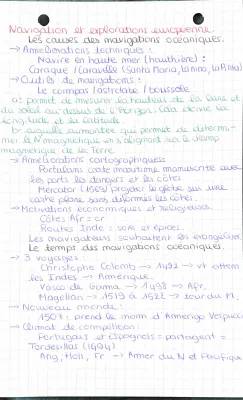 Navigation et explorations européenne.
Les causes des navigations océaniques.
→ Améliorations techniques :
Navire en haute mer (hauthière) :
Caraque / Caravelle (Santa Maria, la Nina, la Pinta)
→ Outils de navigations :
Le compas / astrolabe / boussole
a : permet de mesurer la hauteur de la lune et
du soleil au dessus de l'horizon. Cela donne la
longitude et la latitude
b : aiguille aimantée qui permet de détermi-
ner le N magnétique en s'alignant sur le champ
magnétique de la Terre.
→ Améliorations cartographiques :
Portulans carte maritime manuscrite avec
les ports les dangers et les côtes
Mercator (1569) projeter le globe sur une
carte plane sans déformer les côtes.
→ Motivations économiques et religieuses.
Côtes Afr = or
Routes Inde = soie et épices.
Les navigateurs souhaitent les évangéliser
Le temps des navigations océaniques.
→ 3 voyages :
Christophe Colomb → 1492 → vt attein
les Indes → Amérique.
Vasco de Gama → 1498 → Afr.
Magellan → 1519 à 1522 → tour du M.
→ Nouveau monde :
1507 : prend le nom d'Amerigo Vespucci
→ Climat de compétition :
Portugais et Espagnols = partagent =
Tordesillas (1494)
Ang, Holl, Fr → Amer du N et Pacifique